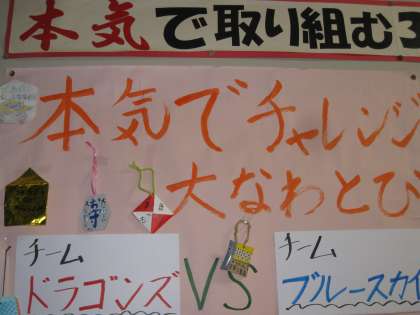 本気で取り組む3
本気でチャレンジ
大なわとび
チーム
ドラゴンズ
VS
チーム
ブルースカイ
お守